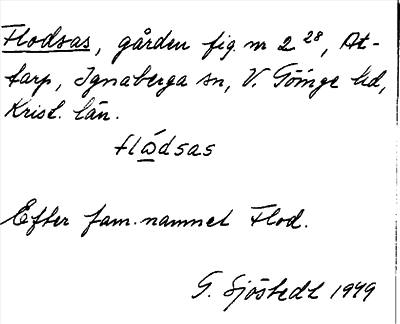 Flodsas, gården fig. nr 2 28, At-
tarp, Ignaberga sn, V. Göinge hd,
Krist. län.
flọ́dsas
Efter fam.namnet Flod.
G. Sjöstedt 1949